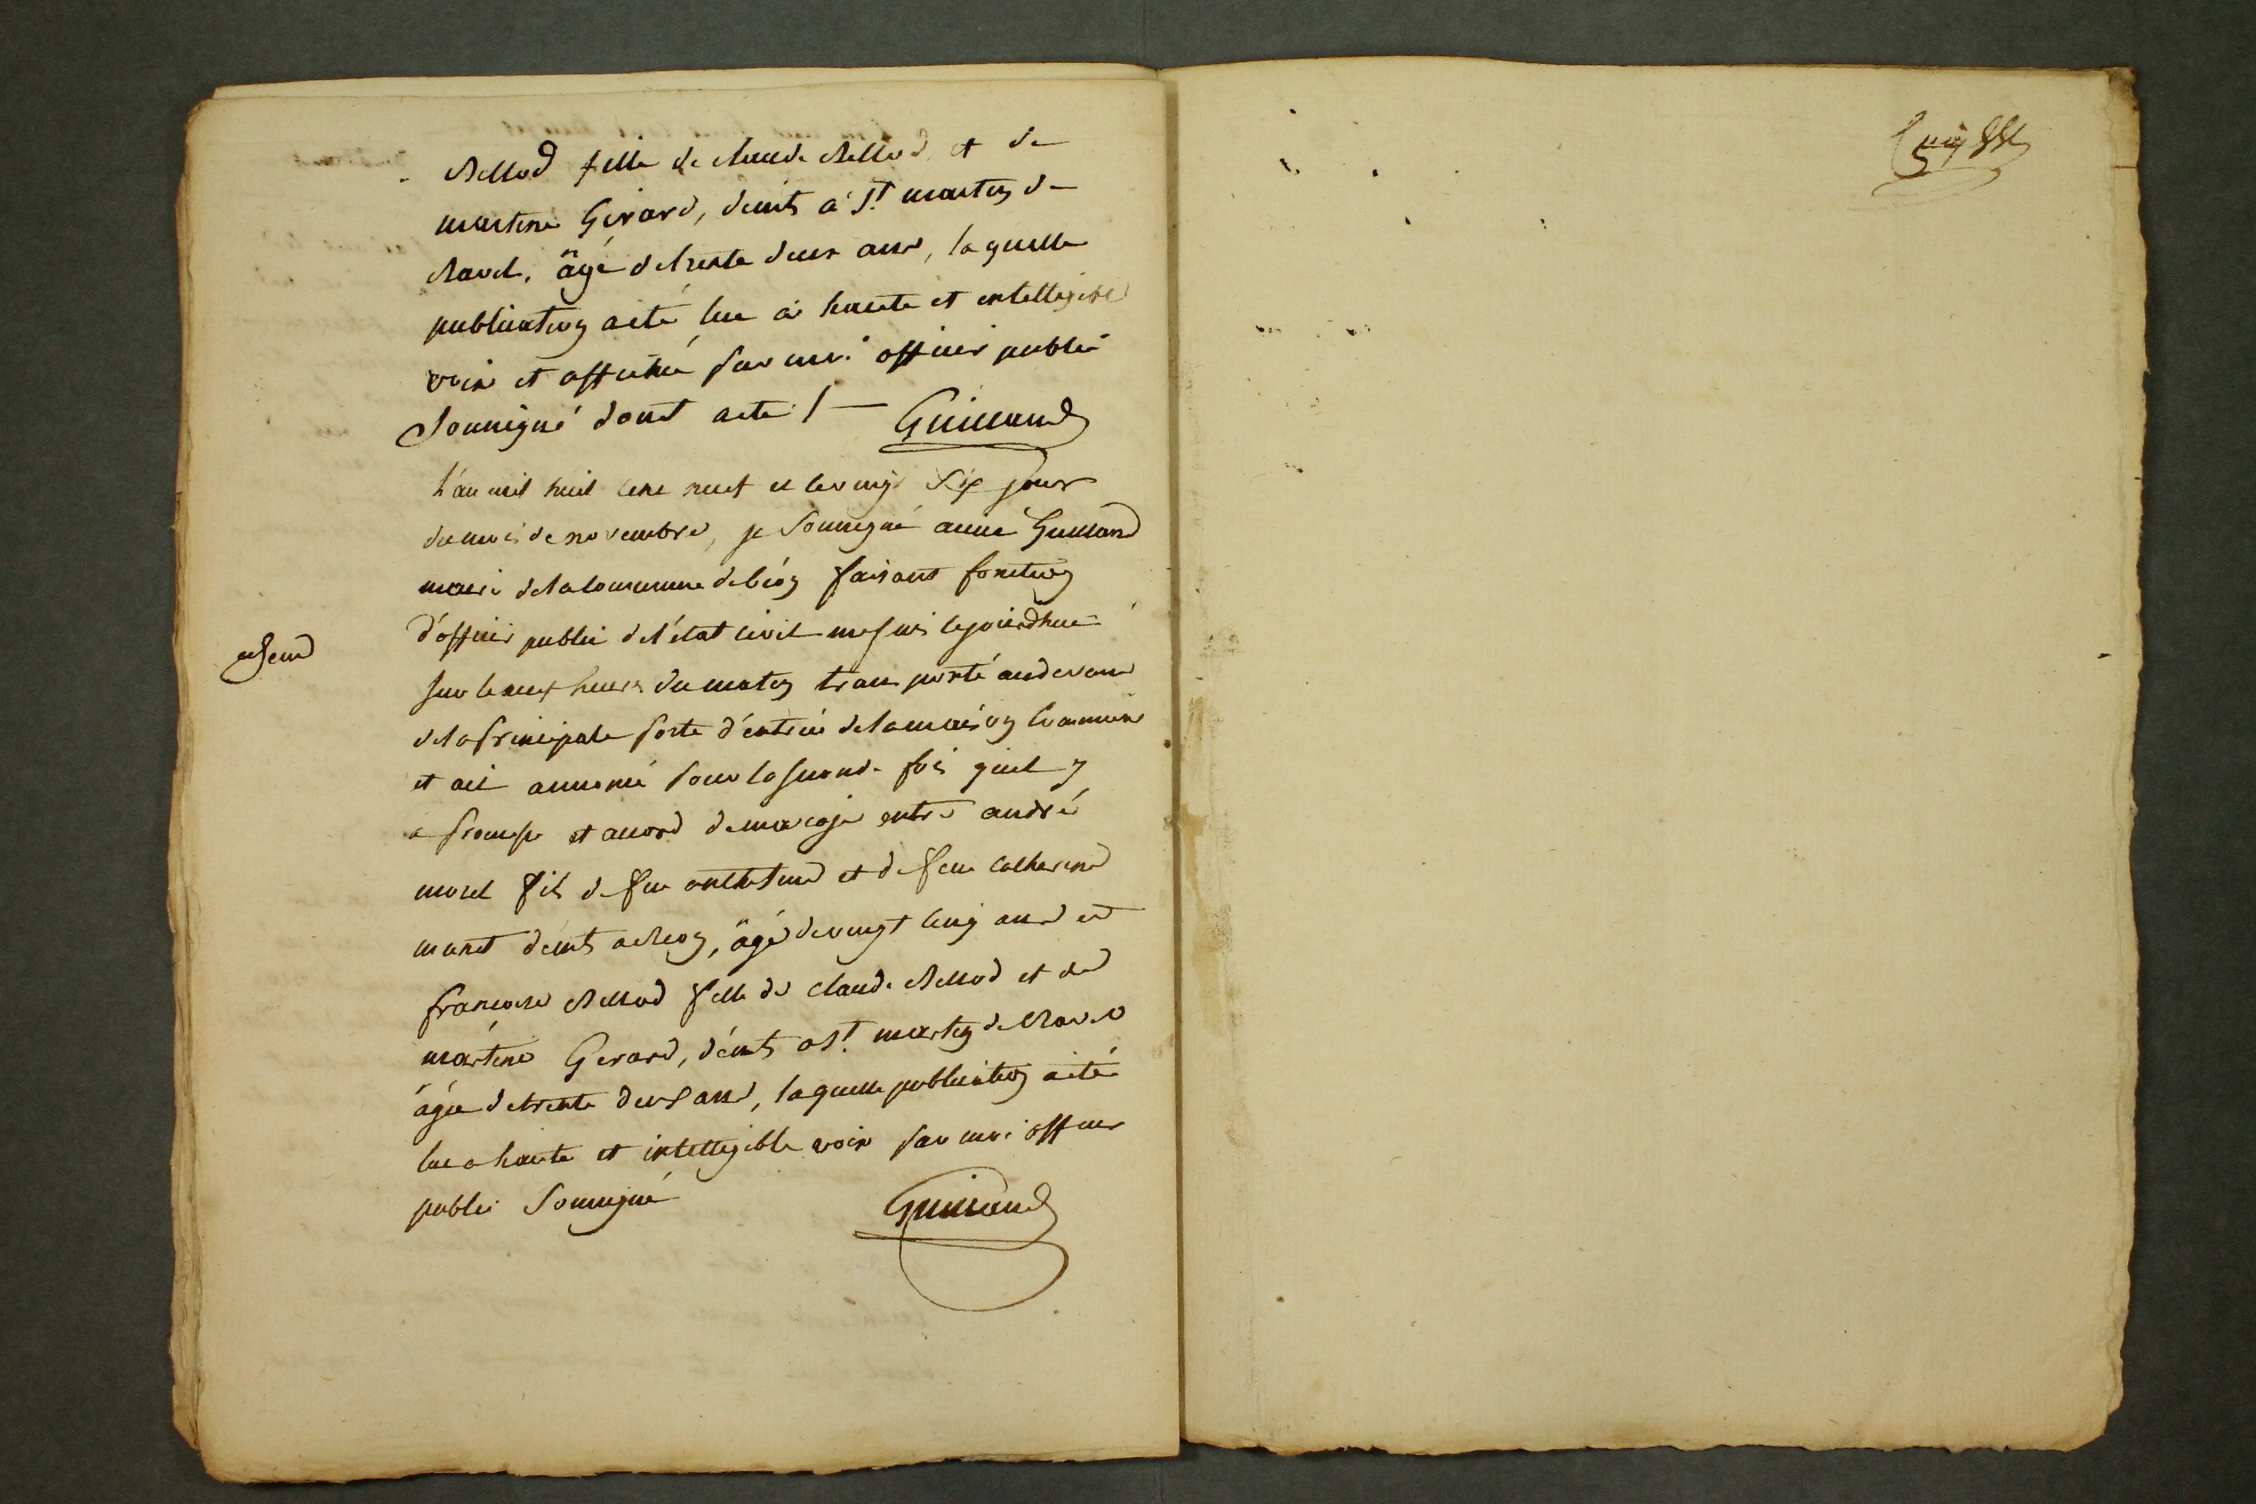 Bellod fille de claude Bellod et de
martine Girard, dem.ts à S.t martin de
Bavel, âgé de trente deux ans, la quelle
publication a eté lue à haute et intelligible
voix et affichée par moi officier public
Soussigné dont acte /. Guilland
L'an mil huit cent neuf et le vingt six jour
du mois de novembre, je Soussigné anne Guilland
maire de la commune de béon faisant fonction
d'officier public de l'état civil me suis cejourdhui
sur le neuf heures du matin transporté audevant
de la principale porte d'entrée de la maison commune
et ait annoncé pour la seconde fois quil y
a promesse et accord de mariage entre andré
morel fils de feu anthelme et de feue catherine
dem.ts a Béon, âgé de vingt cinq ans et
francoise Bellod fille de claude Bellod et de
martine Gerard, dem.ts a S.t martin de Bavel
âgée de trente deux ans, laquelle publication a eté
lue a haute et intelligible voix par moi officier
public Soussigné Guilland